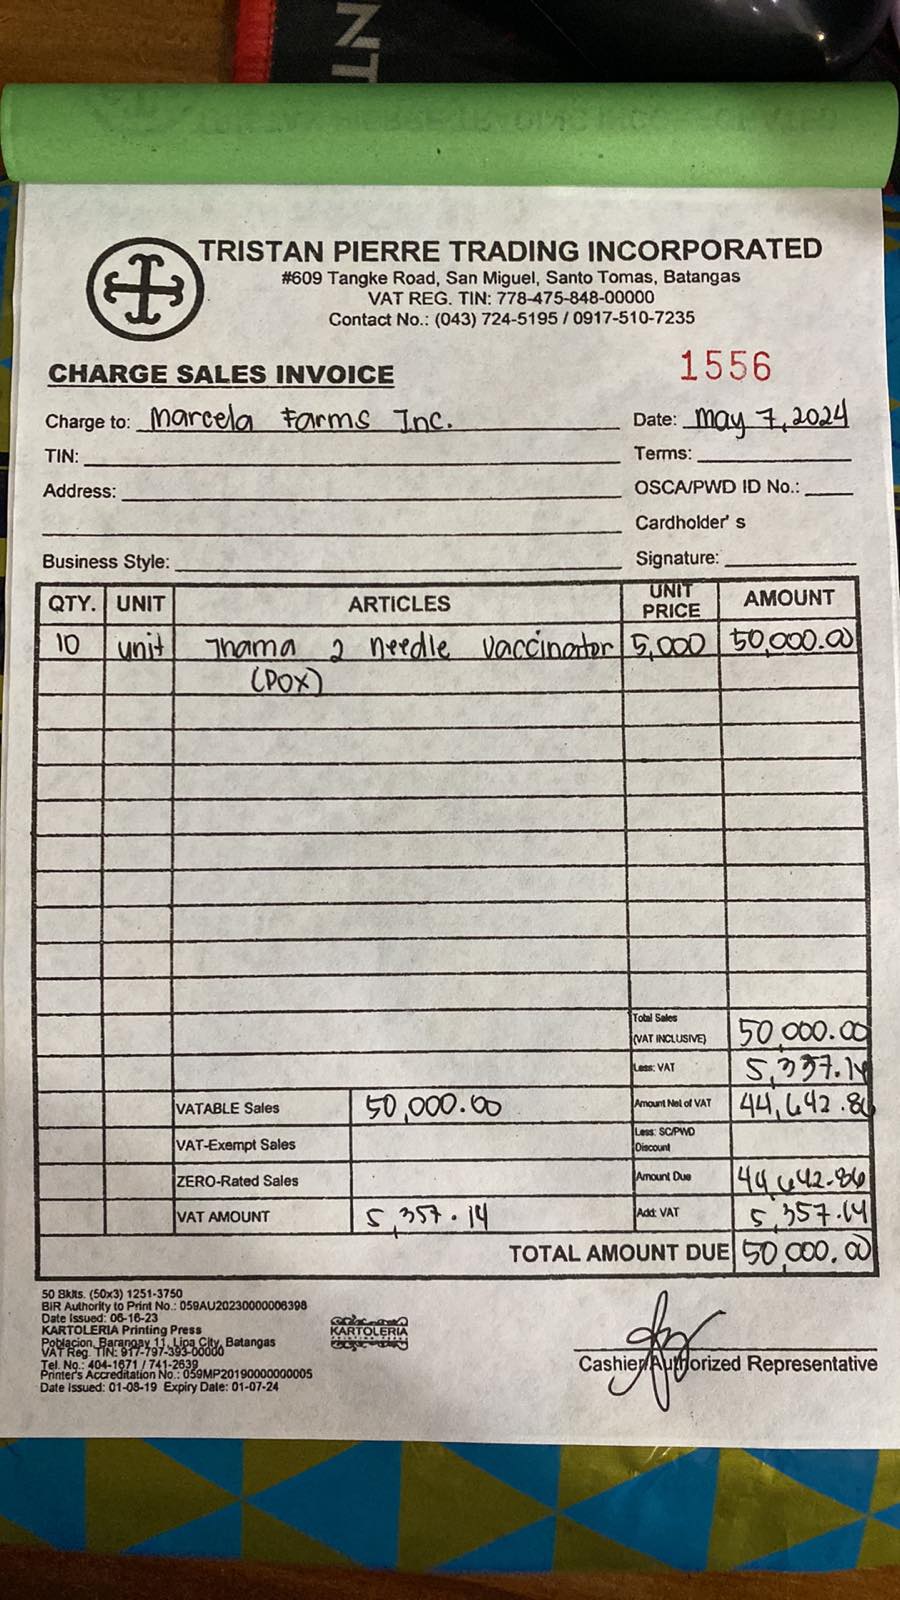 NT
TRISTAN PIERRE TRADING INCORPORATED
#609 Tangke Road, San Miguel, Santo Tomas, Batangas
VAT REG. TIN: 778-475-848-00000
Contact No.: (043) 724-5195 / 0917-510-7235
CHARGE SALES INVOICE 1556
Charge to: Marcela Farms Inc. Date: May 7, 2024
TIN: Terms:
Address: OSCA/PWD ID No.:
Cardholder's
Business Style: Signature:
QTY. UNIT ARTICLES UNIT PRICE AMOUNT
10 unit Thama 2 Needle Vaccinator 5,000 50,000.00
(POX)
Total Sales
(VAT INCLUSIVE) 50,000.00
Less: VAT 5,357.14
VATABLE Sales 50,000.00 Amount Net of VAT 44,642.86
VAT-Exempt Sales Less: SC/PWD Discount
ZERO-Rated Sales Amount Due 44,642.86
VAT AMOUNT 5,357.14 Add: VAT 5,357.14
TOTAL AMOUNT DUE 50,000.00
50 Bklts. (50x3) 1251-3750
BIR Authority to Print No.: 059AU20230000006398
Date Issued: 06-16-23
KARTOLERIA Printing Press
Poblacion, Barangay 11, Lipa City, Batangas
VAT Reg. TIN: 917-797-393-00000
Tel. No.: 404-1671 / 741-2639
Printer's Accreditation No.: 059MP20190000000005
Date Issued: 01-08-19 Expiry Date: 01-07-24
KARTOLERIA
PRINTING PRESS
Cashier/Authorized Representative